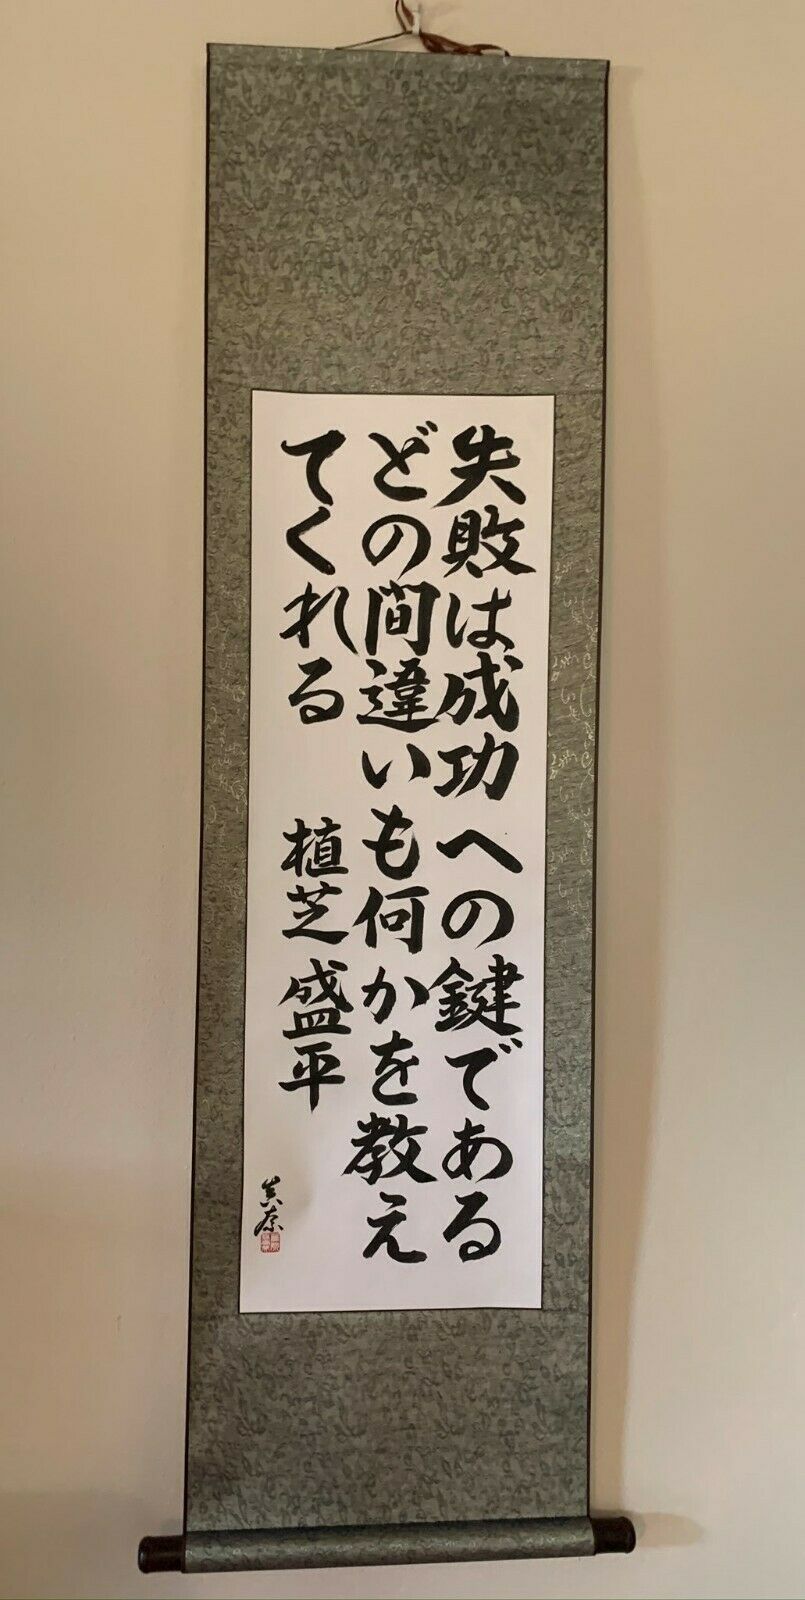 失敗は成功への鍵である
どの間違いも何かを教え
てくれる 植芝盛平
真奈